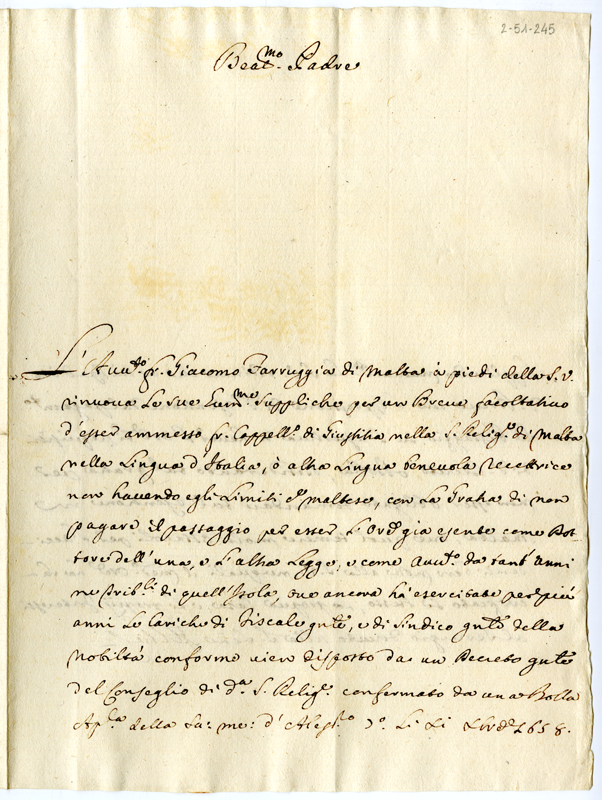 2-51-245
Beat.mo Padre
L'Avv.to fr. Giacomo Farruggia di Malta à piedi della S. V.
rinuova le sue Sup.me suppliche per un Breve facoltativo
d'esser ammesso fr. Cappell.o di Giustitia nella S. Relig.e di Malta
nella Lingua d'Italia, ò altra Lingua benevola recettrice
non havendo egli Limiti come maltese, con la Gratia di non
pagare il passaggio per esser l'Or.e già esente come Dot-
tore dell'una, e l'altra Legge, e come Avv.to da tant'anni
ne Trib.li di quell'Isola, ove ancora hà esercitate per più
anni le cariche di Fiscale gnle, e di Sindico gnle della
nobiltà conforme vien disposto da un Decreto gnle
del Conseglio di d.a S. Relig.e confermato da una Bolla
Ap.lca della sa: me: d'Aless.o 7.o 1658.